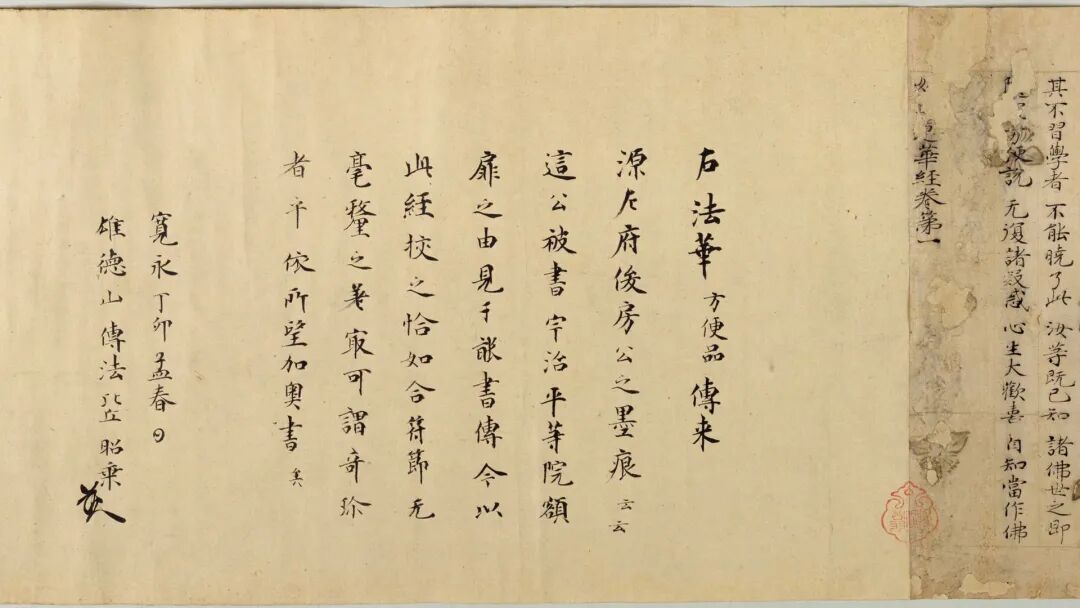 其不習學者 不能曉了此 汝等既已知 諸佛世之師
便說 无復諸疑惑 心生大歡喜 自知當作佛
蓮華経卷第一
右法華 方便品 傳来
源左府俊房公之墨痕 云云
這公被書宇治平等院額
扉之由見于能書傳今以
此経挍之恰如合符節无
毫釐之差寔可謂奇珎
者乎依所望加奥書矣
寛永丁卯孟春日
雄徳山傳法比丘昭乗